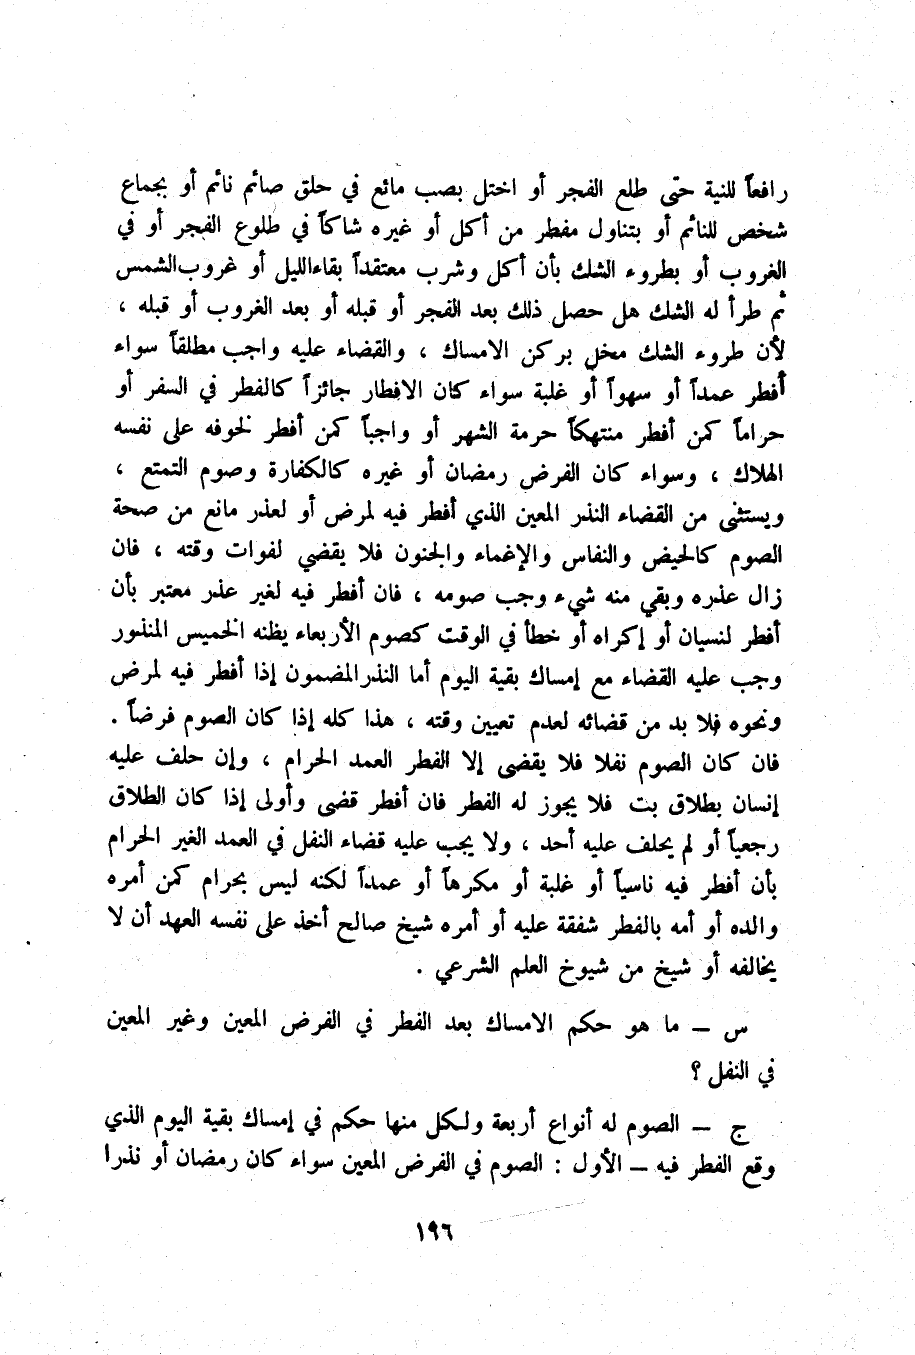 رافعاً للنية حتى طلع الفجر أو اختل بصب مائع في حلق صائم نائم أو بجماع
شخص للنائم أو بتناول مفطر من أكل أو غيره شاكاً في طلوع الفجر أو في
الغروب أو بطروء الشك بأن أكل وشرب معتقداً بقاءالليل أو غروب‌الشمس
ثم طرأ له الشك هل حصل ذلك بعد الفجر أو قبله أو بعد الغروب أو قبله ،
لأن طروء الشك مخل بركن الامساك ، والقضاء عليه واجب مطلقاً سواء
أفطر عمداً أو سهواً أو غلبة سواء كان الافطار جائزاً كالفطر في السفر أو
حراماً كمن أفطر منتهكاً حرمة الشهر أو واجباً كمن أفطر لخوفه على نفسه
الهلاك ، وسواء كان الفرض رمضان أو غيره كالكفارة وصوم التمتع ،
ويستثنى من القضاء النذر المعين الذي أفطر فيه لمرض أو لعذر مانع من صحة
الصوم كالحيض والنفاس والإغماء والجنون فلا يقضي لفوات وقته ، فان
زال عذره وبقي منه شيء وجب صومه ، فان أفطر فيه لغير عذر معتبر بأن
أفطر لنسيان أو إكراه أو خطأ في الوقت كصوم الأربعاء يظنه الخميس المنذور
وجب عليه القضاء مع إمساك بقية اليوم أما النذرالمضمون إذا أفطر فيه لمرض
ونحوه فلا بد من قضائه لعدم تعيين وقته ، هذا كله إذا كان الصوم فرضاً .
فان كان الصوم نفلا فلا يقضى إلا الفطر العمد الحرام ، وإن حلف عليه
إنسان بطلاق بت فلا يجوز له الفطر فان أفطر قضى وأولى إذا كان الطلاق
رجعياً أو لم يحلف عليه أحد ، ولا يجب عليه قضاء النفل في العمد الغير الحرام
بأن أفطر فيه ناسياً أو غلبة أو مكرهاً أو عمداً لكنه ليس بحرام كمن أمره
والده أو أمه بالفطر شفقة عليه أو أمره شيخ صالح أخذ على نفسه العهد أن لا
يخالفه أو شيخ من شيوخ العلم الشرعي .
س – ما هو حكم الامساك بعد الفطر في الفرض المعين وغير المعين
في النفل ؟
ج – الصوم له أنواع أربعة ولكل منها حكم في إمساك بقية اليوم الذي
وقع الفطر فيه – الأول : الصوم في الفرض المعين سواء كان رمضان أو نذرا
١٩٦